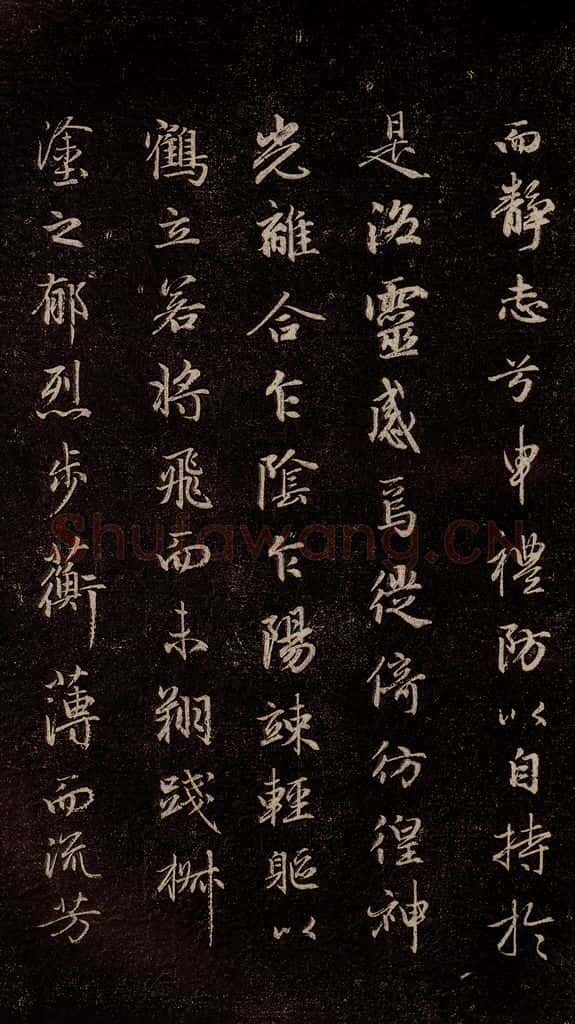 而靜志兮申禮防以自持於
是洛靈感焉徙倚彷徨神
光離合乍陰乍陽竦輕軀以
鶴立若將飛而未翔踐椒
塗之郁烈步蘅薄而流芳
Shufawang.CN